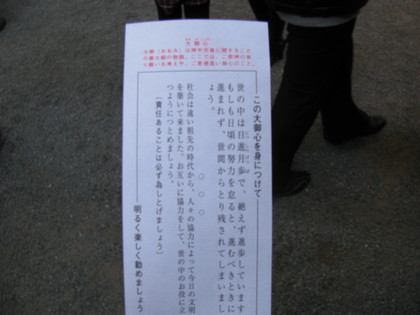 大御心
この大御心を身につけて
世の中は日進月歩で、絶えず進歩しています
もしも日頃の努力を怠ると、進むべきときに
進まれず、世間からとり残されてしまいまし
ょう。
○ ○ ○
社会は遠い祖先の時代から、人々の協力によって今日の文明
を築いて来ました。お互いに協力をして、世の中のお役に立
つようにつとめましょう。
(責任あることは必ず為しとげましょう)
明るく楽しく勤めましょう